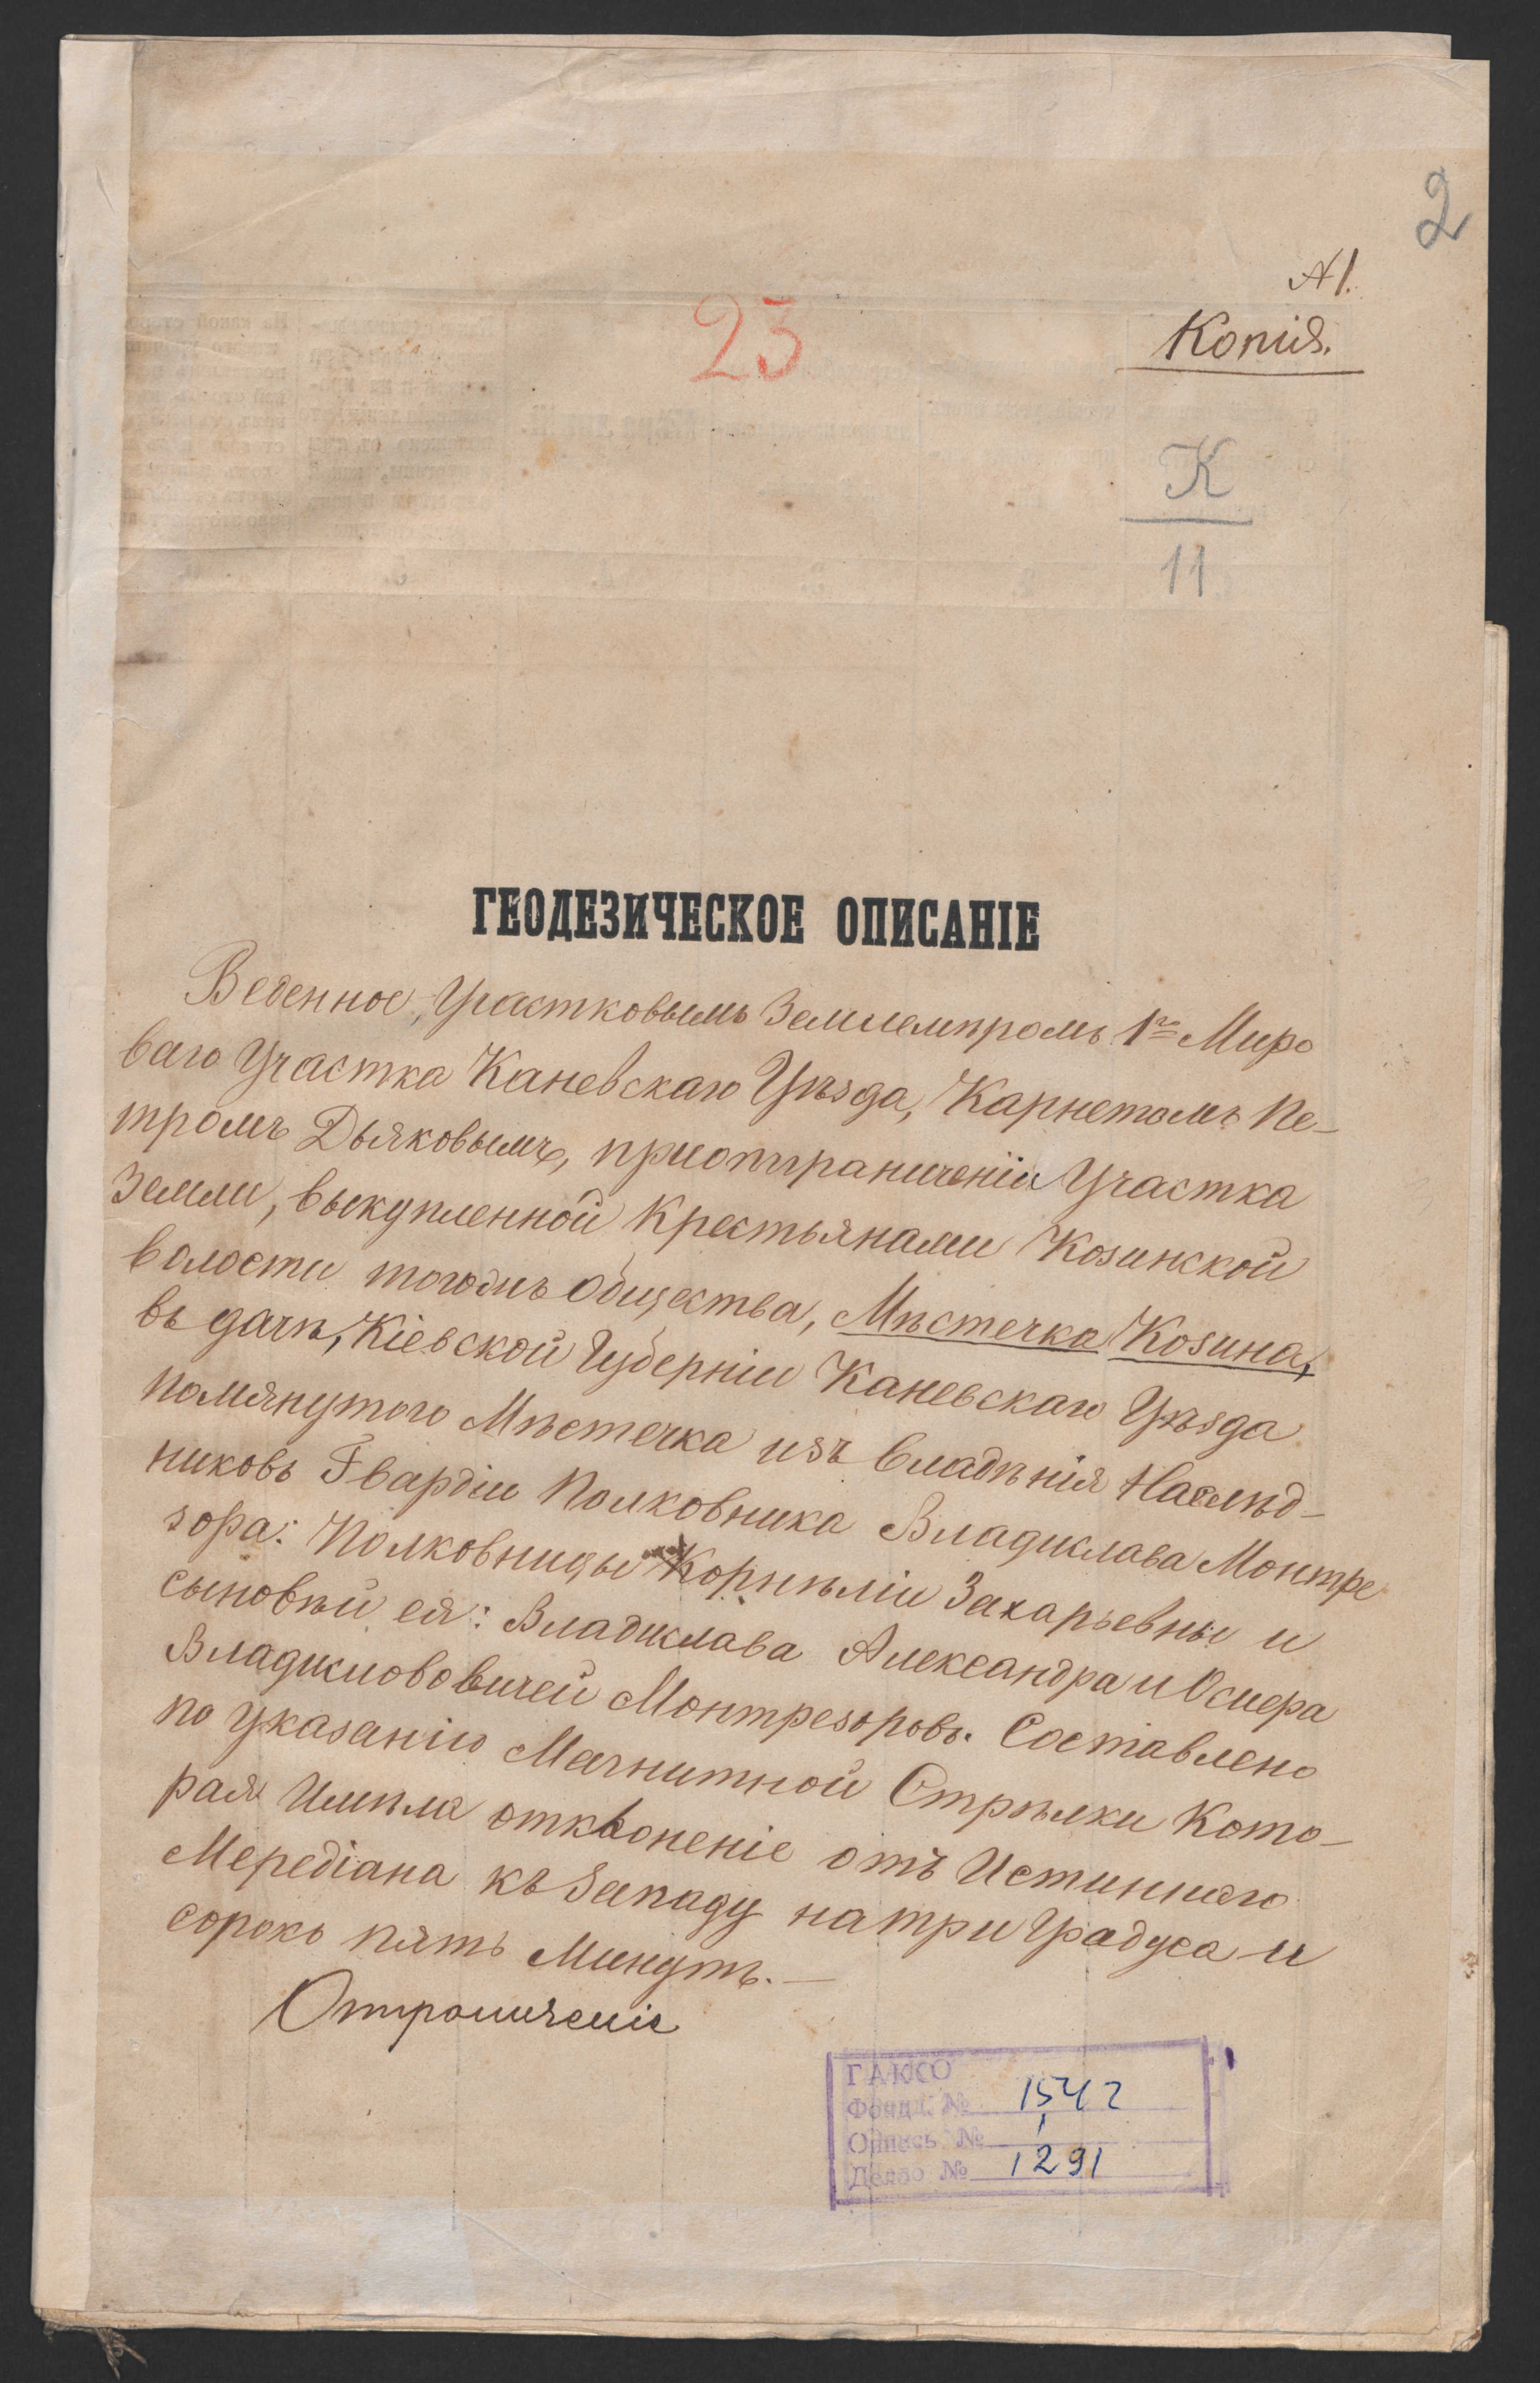 2
А1.
23
Копія.
К
11
ГЕОДЕЗИЧЕСКОЕ ОПИСАНІЕ
Веденное, Участковымъ Землемѣромъ 1го Миро
ваго Участка Каневскаго Уѣзда, Карнетомъ Пе-
тромъ Дьяковымъ, приотграниченіи Участка
Земли, выкупленной Крестьянами Козинской
волости тогожъ Общества, Мѣстечка Козина,
въ дачѣ, Кіевской Губерніи Каневскаго Уѣзда
помянутого Мѣстечка изъ Владѣнія Наслѣд-
никовъ Гвардіи Полковника Владислава Монтре
зора: Полковницы Корнѣліи Захарьевны и
сыновѣй ея: Владислава Александра и
Владиславовичей Монтрезоровъ. Составлено
по указанію Магнитной Стрѣлки Кото-
рая Имѣла отклоненіе отъ Истиннаго
Мередіана къ Западу на три Градуса и
сорокъ пять Минутъ.—
Отграниченіе
ГАКСО
Фонд № 1542
Опись № 1
Дело № 1291